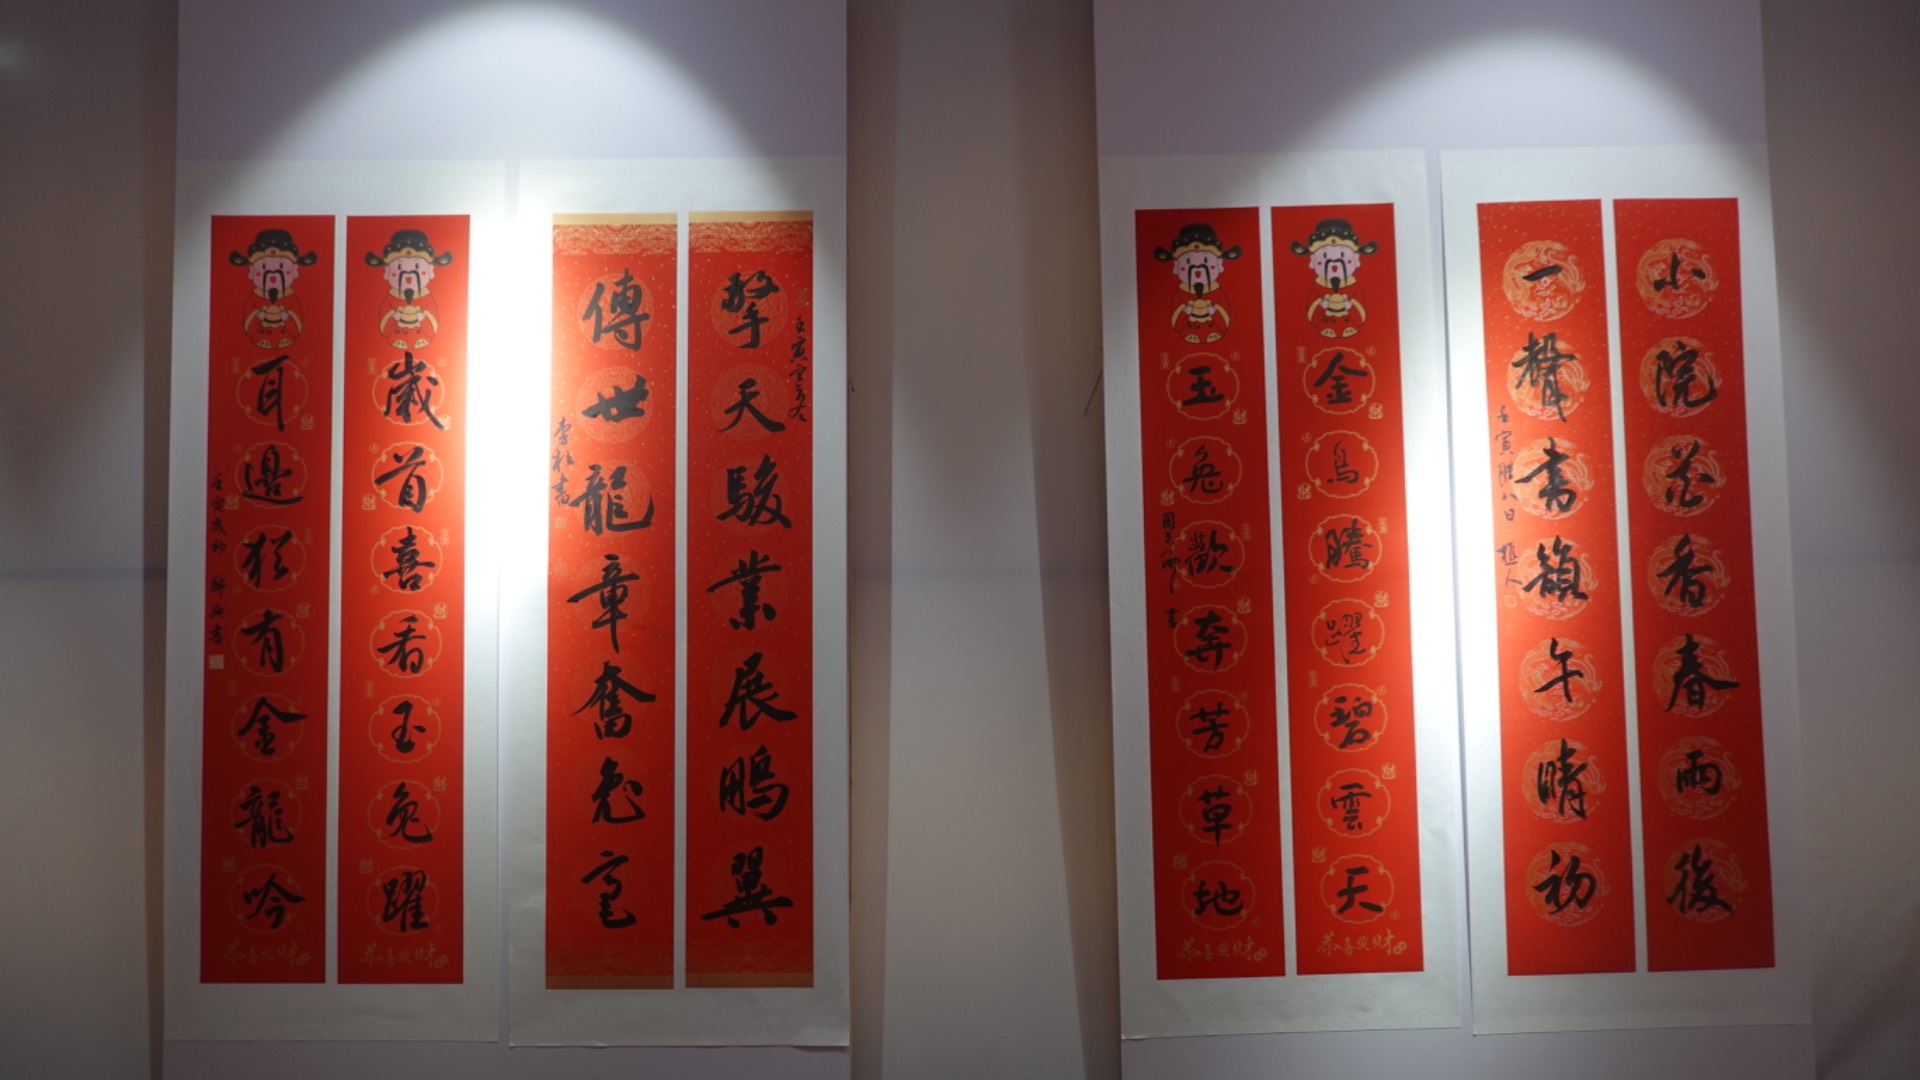 小院花香春雨後
一聲書籟午晴初
壬寅臘八日
金烏騰躍碧雲天
恭喜發財
玉兔歡奔芳草地
書
恭喜發財
擎天駿業展鵬翼
壬寅
傳世龍章奮兔毫
李松書
歲首喜看玉兔躍
恭喜發財
耳邊猶有金龍吟
壬寅歲杪 鄭書
恭喜發財